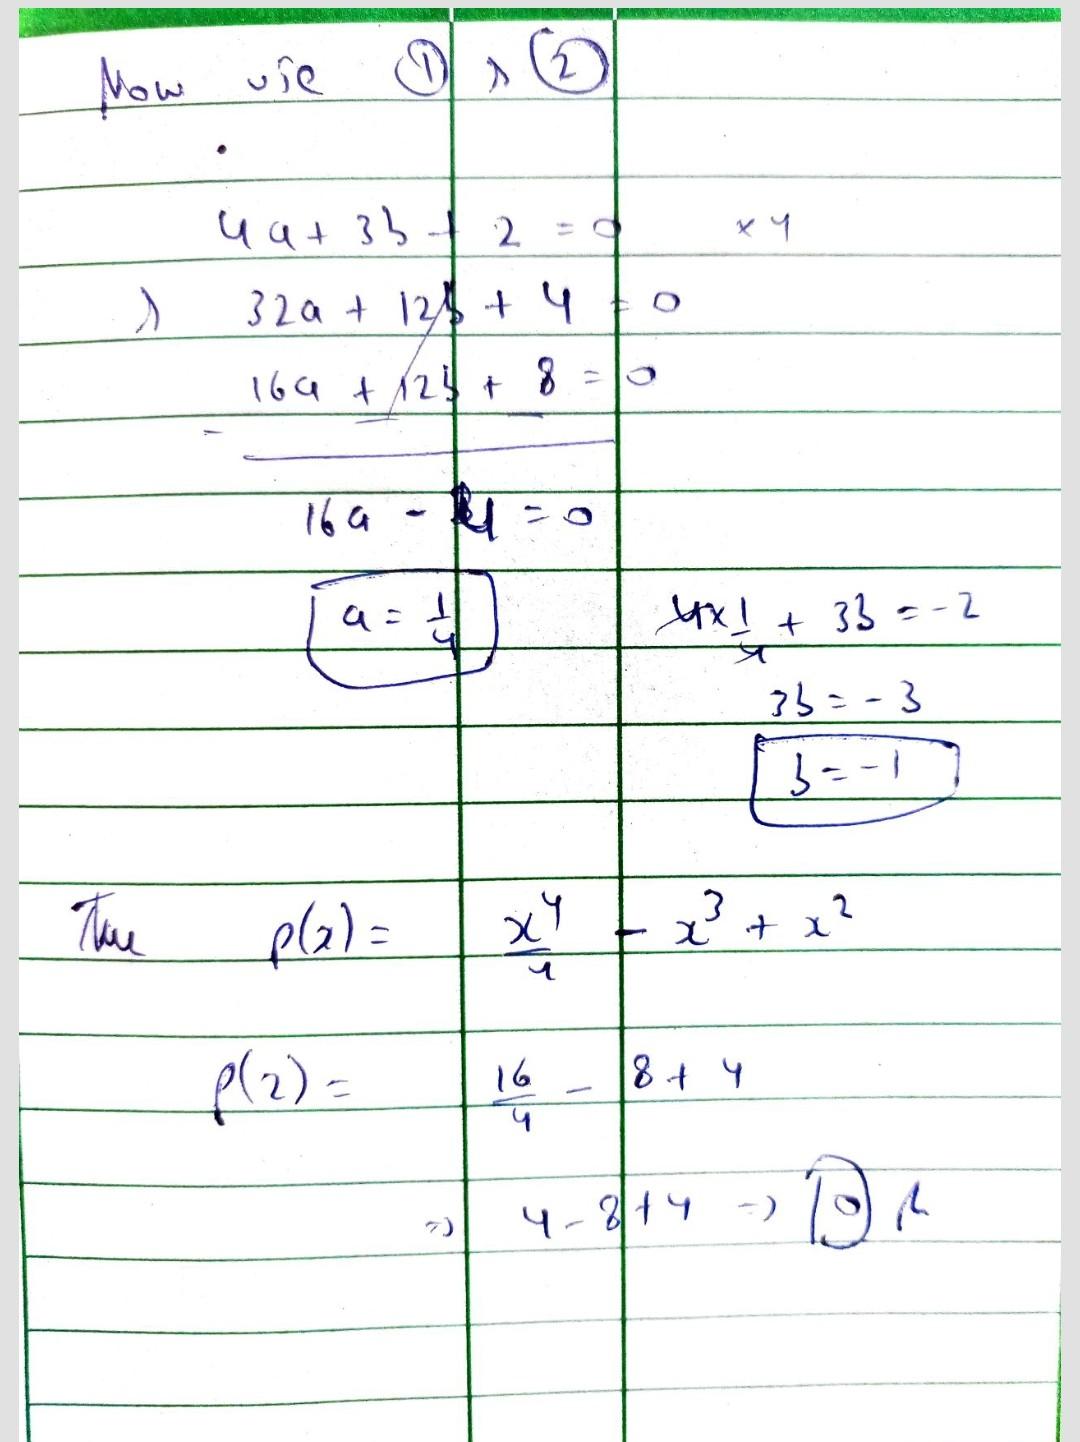 Now use ① & ②
4a + 3b + 2 = 0 × 4
& 32a + 12b + 4 = 0
16a + 12b + 8 = 0
-
16a - 4 = 0
a = 1/4 4 × 1/4 + 3b = -2
3b = -3
b = -1
p(x) = x⁴/4 - x³ + x²
p(2) = 16/4 - 8 + 4
⇒ 4 - 8 + 4 ⇒ 0